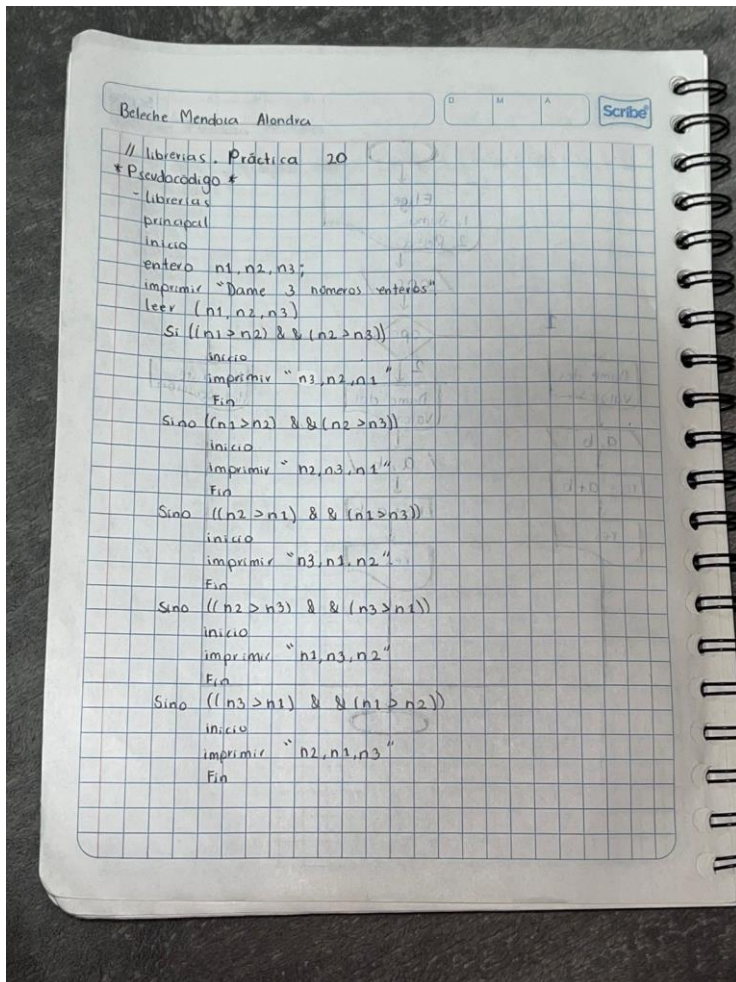 D M A
Scribe
Beleche Mendoza Alondra
// librerias. Práctica 20
* Pseudocódigo *
- Librerias
principal
inicio
entero n1, n2, n3;
imprimir "Dame 3 números enteros"
leer (n1, n2, n3)
Si ((n1 > n2) && (n2 > n3))
inicio
imprimir "n3, n2, n1"
Fin
Sino ((n1 > n2) && (n2 > n3))
inicio
imprimir "n2, n3, n1"
Fin
Sino ((n2 > n1) && (n1 > n3))
inicio
imprimir "n3, n1, n2"
Fin
Sino ((n2 > n3) && (n3 > n1))
inicio
imprimir "n1, n3, n2"
Fin
Sino ((n3 > n1) && (n1 > n2))
inicio
imprimir "n2, n1, n3"
Fin